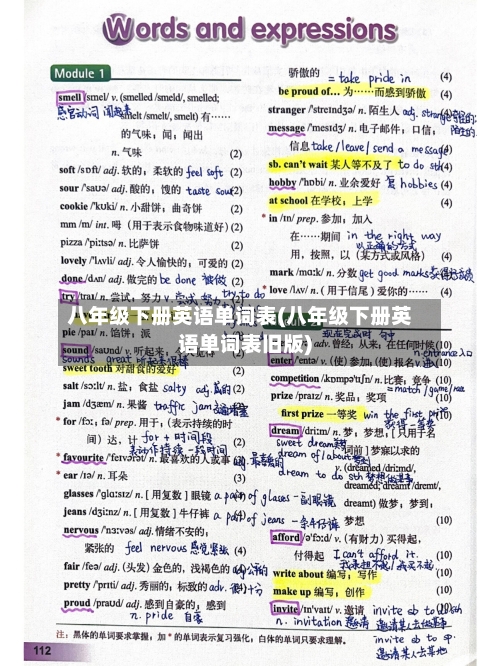 Words and expressions
Module 1
smell /smel/ v. (smelled /smeld/, smelled;
感官动词 闻起来 smelt /smelt/, smelt) 有……
的气味；闻；闻出
n. 气味 (2)
soft /sɒft/ adj. 软的；柔软的 feel soft (2)
sour /saʊə/ adj. 酸的；馊的 taste sour (2)
cookie /ˈkʊki/ n. 小甜饼；曲奇饼 (2)
mm /m/ int. 呣（用于表示食物味道好）(2)
pizza /ˈpiːtsə/ n. 比萨饼 (2)
lovely /ˈlʌvli/ adj. 令人愉快的；可爱的 (2)
done /dʌn/ adj. 做完的 be done 被做 (2)
try /traɪ/ n. 尝试；努力 v. 尝试 努力 try to do
pie /paɪ/ n. 馅饼；派
sound /saʊnd/ v. 听起来
sounds great 听起来
sweet tooth 对甜食的爱好
salt /sɔːlt/ n. 盐；食盐 salty adj. (2)
jam /dʒæm/ n. 果酱 traffic jam (2)
* for /fɔː; fə/ prep. 用于；(表示持续的时
间）达，计 for + 时间段
表动作持续一段时间
* favourite /ˈfeɪvərɪt/ n. 最喜欢的人或事 (2)
* ear /ɪə/ n. 耳朵 (3)
glasses /ˈɡlɑːsɪz/ n. [用复数] 眼镜 a pair of glasses 一副眼镜
jeans /dʒiːnz/ n. [用复数] 牛仔裤 a pair of jeans 一条牛仔裤
nervous /ˈnɜːvəs/ adj. 情绪不安的；
紧张的 feel nervous 感觉紧张 (4)
fair /feə/ adj. (头发) 金色的，浅褐色的 (4)
pretty /ˈprɪti/ adj. 秀丽的；标致的 adv. (4)
proud /praʊd/ adj. 感到自豪的，感到
n. pride 自豪
骄傲的 = take pride in (4)
be proud of… 为……而感到骄傲 (4)
stranger /ˈstreɪndʒə/ n. 陌生人 adj. strange
message /ˈmesɪdʒ/ n. 电子邮件；口信；
信息 take/leave/send a message
sb. can't wait 某人等不及了 to do sth (4)
hobby /ˈhɒbi/ n. 业余爱好 复 hobbies (4)
at school 在学校；上学 (4)
* in /ɪn/ prep. 参加；加入
在……期间 in the right way
用，按照，以（某方式或风格）(4)
mark /mɑːk/ n. 分数 get good marks
* love /lʌv/ n. (用于信尾) 爱你的…… (4)
八年级下册英语单词表(八年级下册英
语单词表旧版)
adv. 曾经；从来；在任何时候 (10)
enter /ˈentə/ v. (使) 参加；(使) 报名 n. entrance 入口
competition /ˌkɒmpəˈtɪʃn/ n. 比赛；竞争
prize /praɪz/ n. 奖品；奖项 = match/game
first prize 一等奖 win the first prize
dream /driːm/ n. 梦；梦想；[只用于名
sweet dream 词前] 梦寐以求的
dream of/about v. (dreamed /driːmd/,
dream to do sth dreamed; dreamt /dremt/,
dreamt) 做梦；梦到；
梦想 (10)
afford /əˈfɔːd/ v. (有财力) 买得起，
付得起 I can't afford it. (10)
write about 编写；写作 (10)
make up 编写；创作 (10)
invite /ɪnˈvaɪt/ v. 邀请 invite sb to
n. invitation 邀请
invite sb to sp.
邀请某人去某地
注：黑体的单词要求掌握，加 * 的单词表示复习强化，白体的单词只要求理解。
112